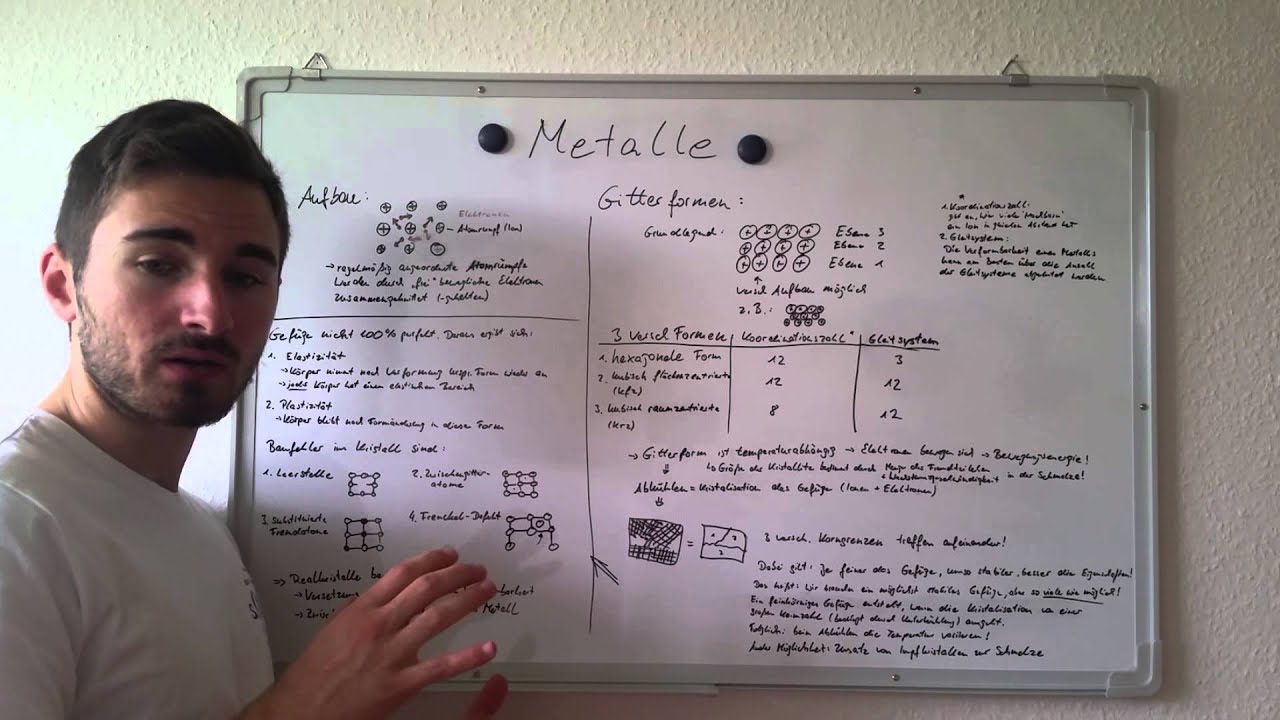 Metalle
Aufbau:
Elektronen
Atomrumpf (Ion)
→ regelmäßig angeordnete Atomrümpfe
werden durch "frei" bewegliche Elektronen
zusammengekittet (-gehalten)
Gefüge nicht 100% perfekt. Daraus ergibt sich:
1. Elastizität
→ Körper nimmt nach Verformung urspr. Form wieder an
→ jeder Körper hat einen elastischen Bereich
2. Plastizität
→ Körper bleibt nach Formänderung in dieser Form
Baufehler im Kristall sind:
1. Leerstelle
2. Zwischengitter-
atome
3. Substituierte
Fremdatome
4. Frenckel-Defekt
⇒ Realkristalle
→ Versetzung
Metall
Gitterformen:
Grundlegend:
Ebene 3
Ebene 2
Ebene 1
versch Aufbau möglich
z.B.:
*
1. Koordinationszahl:
gibt an, wie viele Nachbarn
ein Ion in gleichem Abstand hat
2. Gleitsystem:
Die Verformbarkeit eines Metalls
kann am Besten über die Anzahl
der Gleitsysteme abgeleitet werden
3 versch Formen Koordinationszahl* Gleitsystem
1. hexagonale Form 12 3
2. kubisch flächenzentrierte 12 12
(kfz)
3. kubisch raumzentrierte 8 12
(krz)
→ Gitterform ist temperaturabhängig → Elektronen bewegen sich → Bewegungsenergie!
↳ Größe der Kristallite bestimmt durch Menge der Fremdteilchen
+ Wachstumsgeschwindigkeit in der Schmelze!
Abkühlen = Kristalisation des Gefüges (Ionen + Elektronen)
=
1 2
3
3 versch. Korngrenzen treffen aufeinander!
Dabei gilt: je feiner das Gefüge, umso stabiler, besser die Eigenschaften!
Das heißt: Wir brauchen ein möglichst stabiles Gefüge, also so viele wie möglich!
Ein feinkörniges Gefüge entsteht, wenn die Kristalisation von einer
großen Keimzahl (bedingt durch Unterkühlung) ausgeht.
Folglich: beim Abkühlen die Temperatur variieren!
Andere Möglichkeit: Zusatz von Impfkristallen zur Schmelze